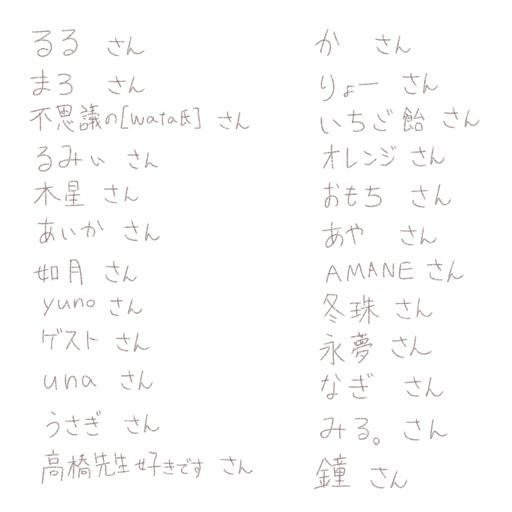 るる さん
まろ さん
不思議の[wata氏] さん
るみぃ さん
木星 さん
あいか さん
如月 さん
yuno さん
ゲスト さん
una さん
うさぎ さん
高橋先生好きです さん
か さん
りょー さん
いちご飴 さん
オレンジ さん
おもち さん
あや さん
AMANE さん
冬珠 さん
永夢 さん
なぎ さん
みる。 さん
鐘 さん